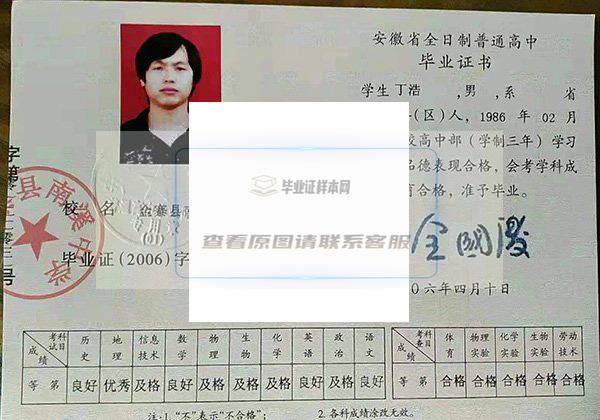 安徽省全日制普通高中
毕业证书
学生丁浩 ,男,系 省
(区)人,1986 年 02 月
校高中部(学制三年)学习
品德表现合格,会考学科成
合格,准予毕业。
毕业证样本网
查看原图请联系客服
县南 中学
校 名 金寨县
毕业证(2006)字
〇六年四月十日
考试科目 成绩 历史 地理 信息技术 数学 物理 生物 化学 英语 政治 语文
等 第 良好 优秀 及格 良好 及格 及格 及格 良好 良好 良好
考查科目 成绩 体育 物理实验 化学实验 生物实验 劳动技术
等 第 合格 合格 合格 合格 合格
注:1.“不”表示“不合格”; 2.各科成绩涂改无效。